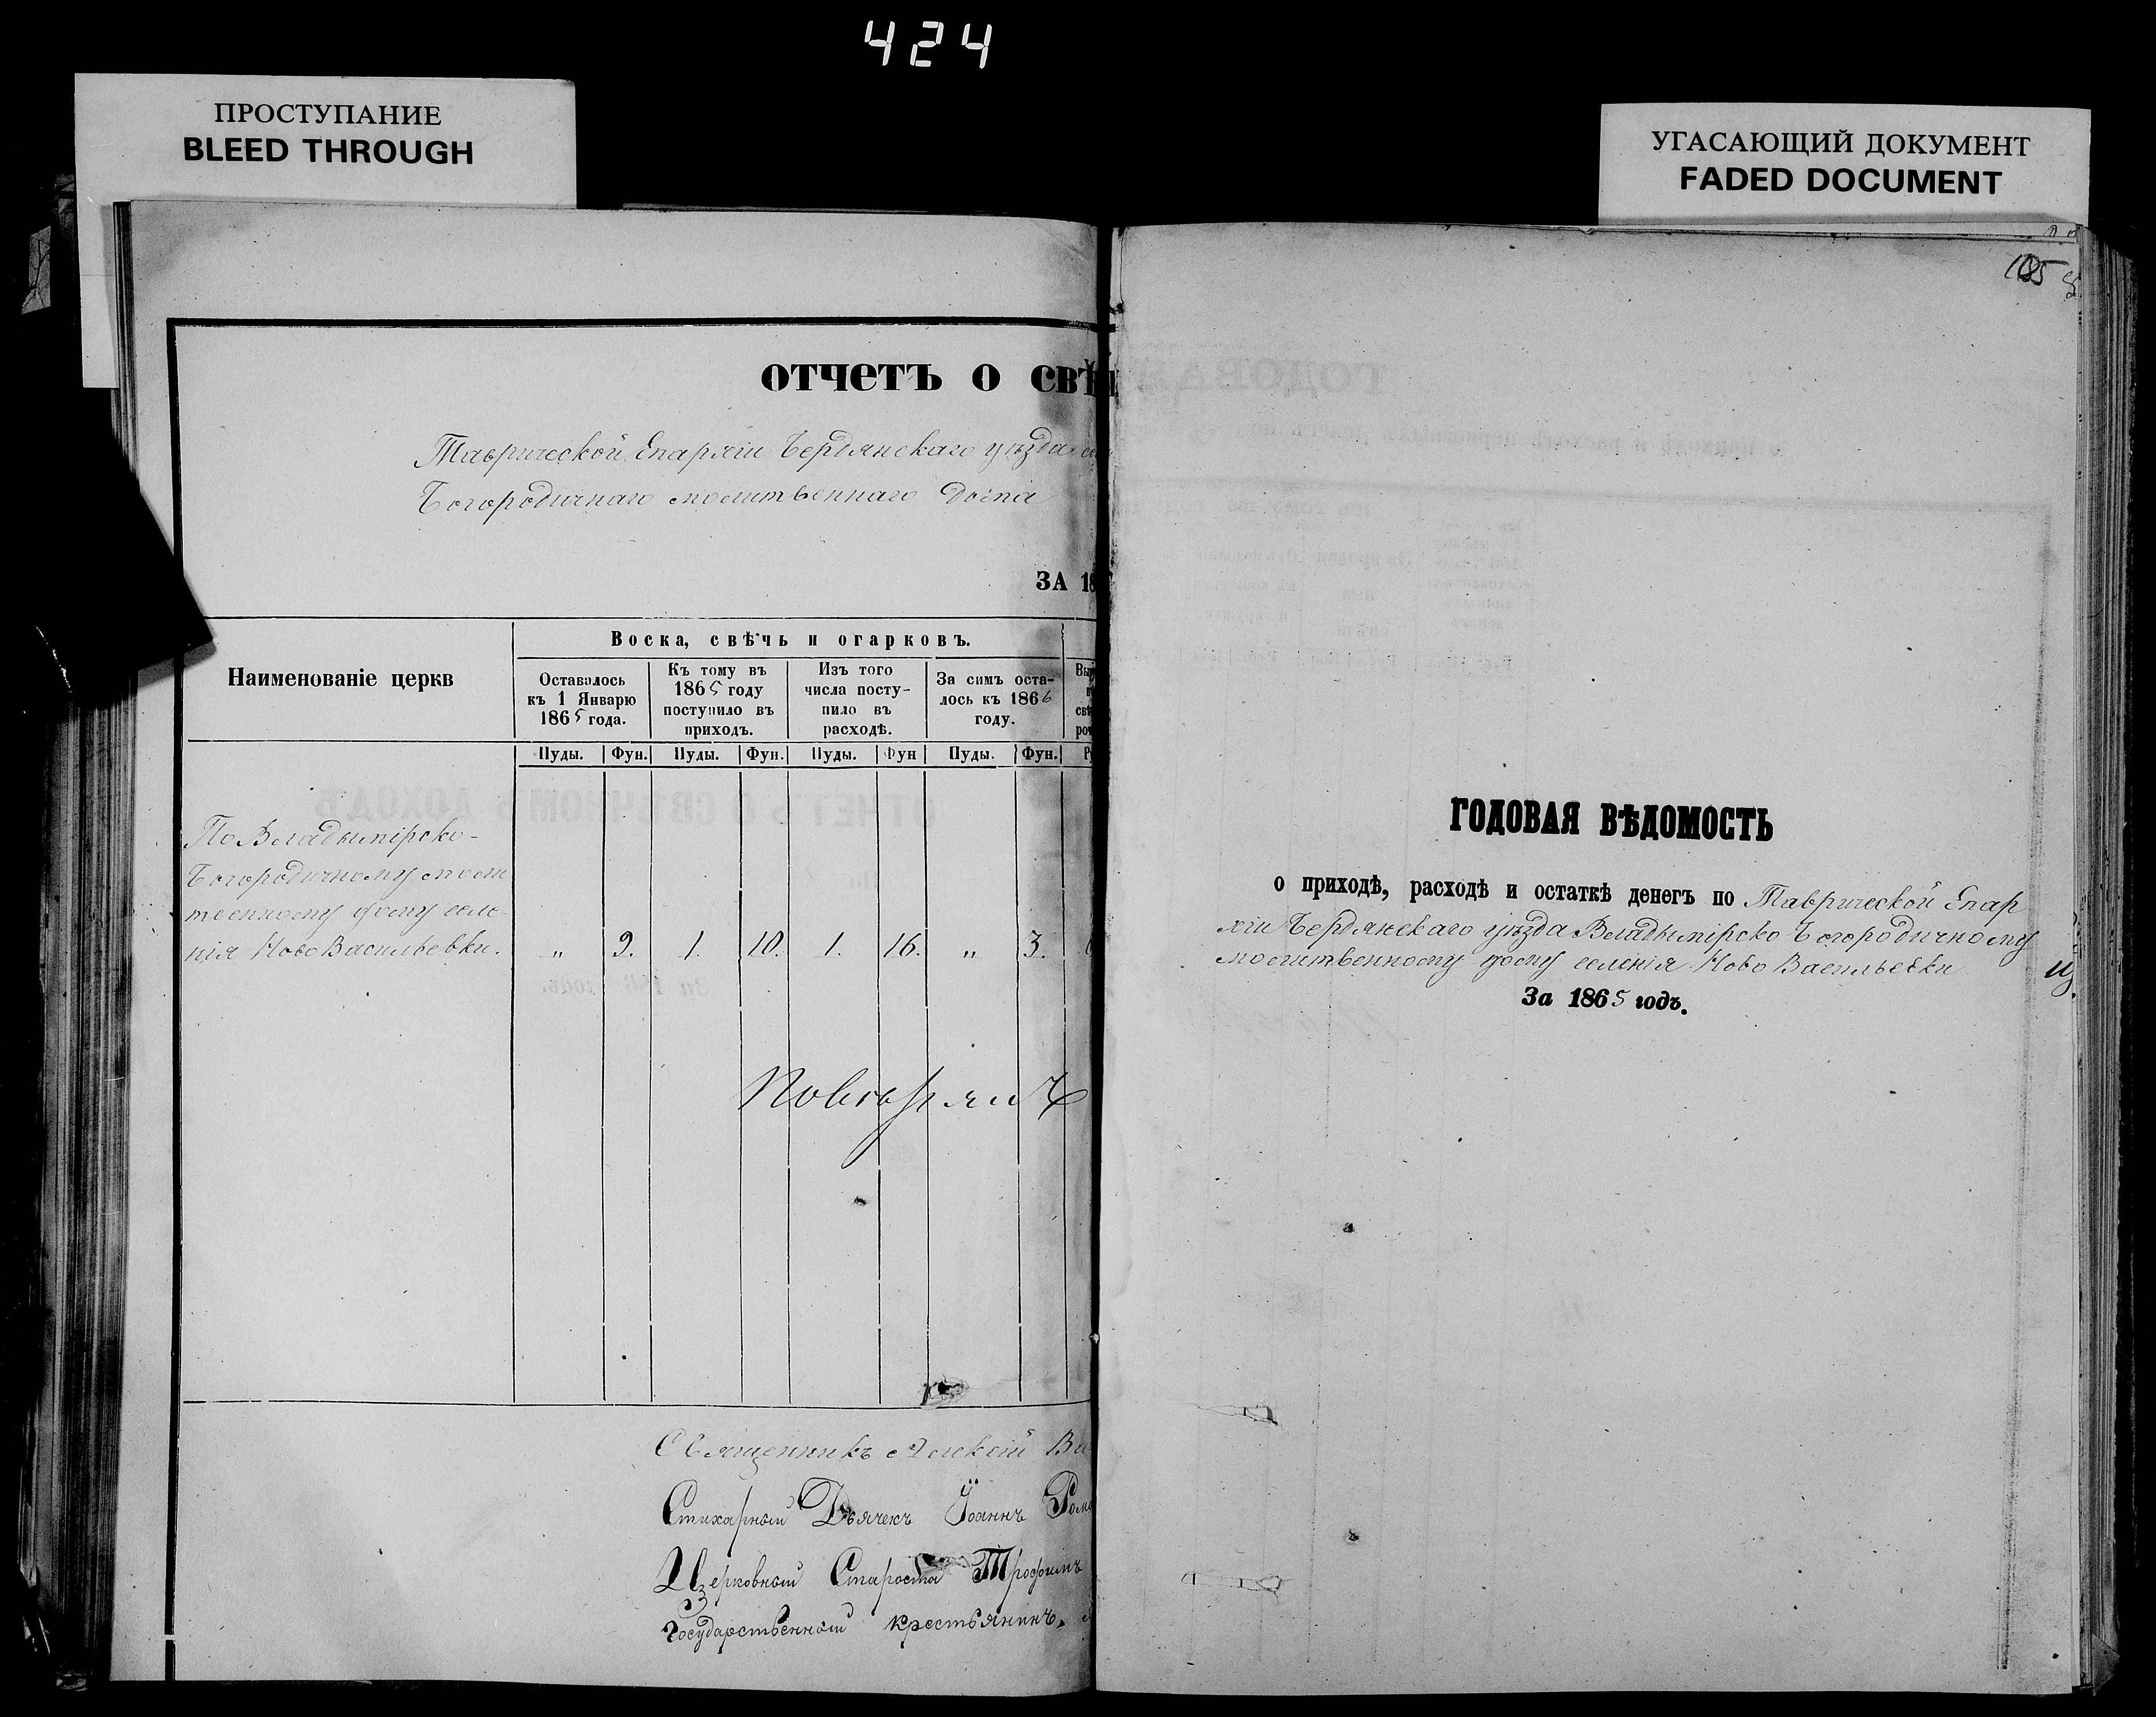 424
ПРОСТУПАНИЕ
BLEED THROUGH
УГАСАЮЩИЙ ДОКУМЕНТ
FADED DOCUMENT
отчетъ о свѣ
Таврической Епархіи Бердянскаго уѣзда
Богородичнаго молитвеннаго дома
ЗА 18
Наименованіе церкв
Воска, свѣчь и огарковъ.
Оставалось къ 1 Январю 1865 года.
Къ тому въ 1865 году поступило въ приходъ.
Изъ того числа поступило въ расходѣ.
За симъ осталось къ 1866 году.
Пуды. Фун. Пуды. Фун. Пуды. Фун Пуды. Фун.
По Владымірско-
Богородичному моли
твенному дому селе-
нія Ново Васильевки. „ 9. 1. 10. 1. 16. „ 3.
Повторяит
Священникъ Алексій Ви
Стихарный Дьячекъ Іоаннъ Рома
Церковный Староста Трофимъ
Государственный крестьянинъ,
185
ГОДОВАЯ ВѢДОМОСТЬ
о приходѣ, расходѣ и остаткѣ денегъ по Таврической Епар
хіи Бердянскаго уѣзда Владымірско Богородичному
молитвенному дому селенія Ново Васильевки
За 1865 годъ.